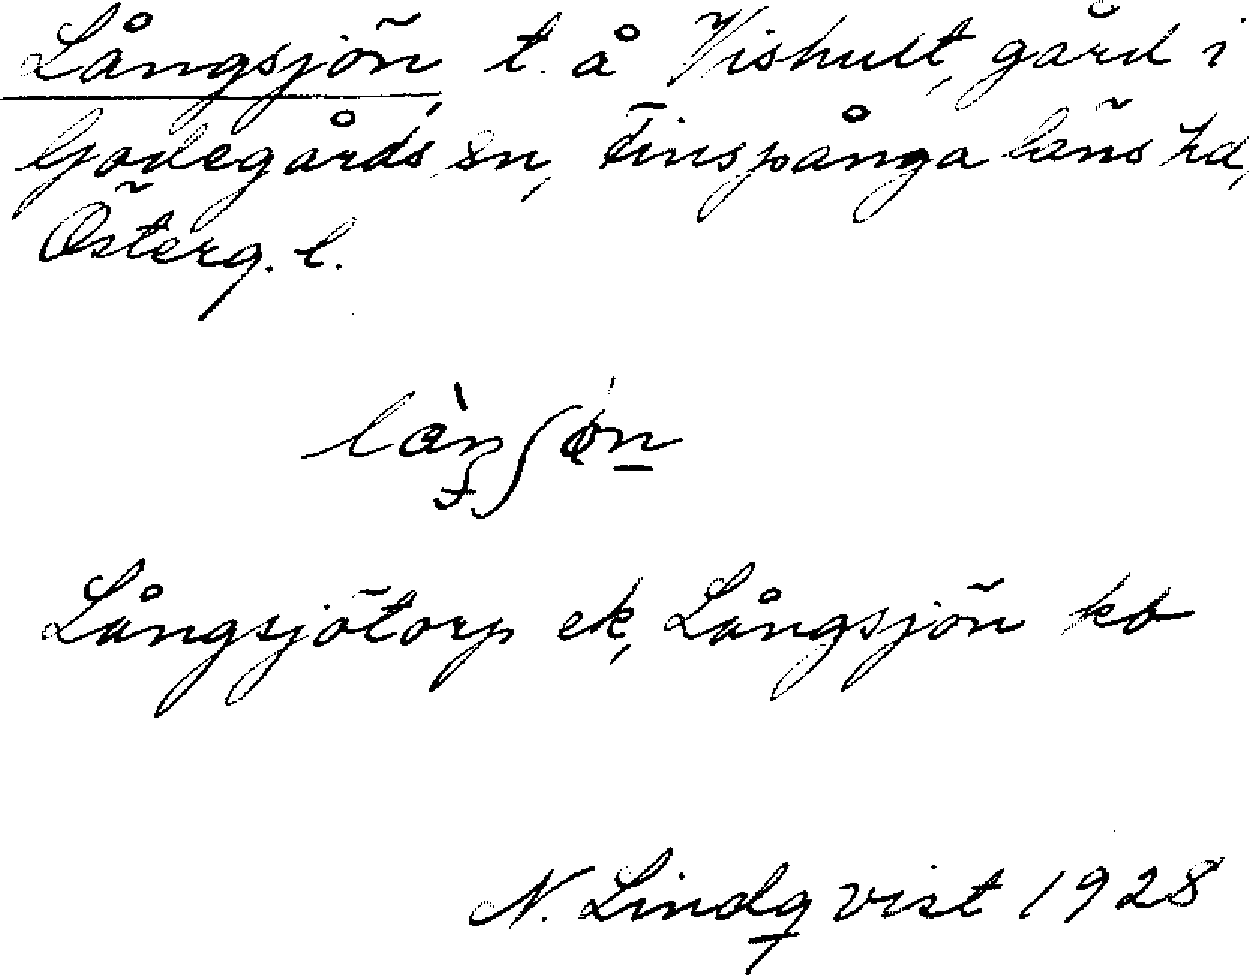 Långsjön, t. å Vishult, gård i
Godegårds sn, Finspånga läns hd,
Österg. l.
Långsjötorp ek, Långsjön kb
N. Lindqvist 1928